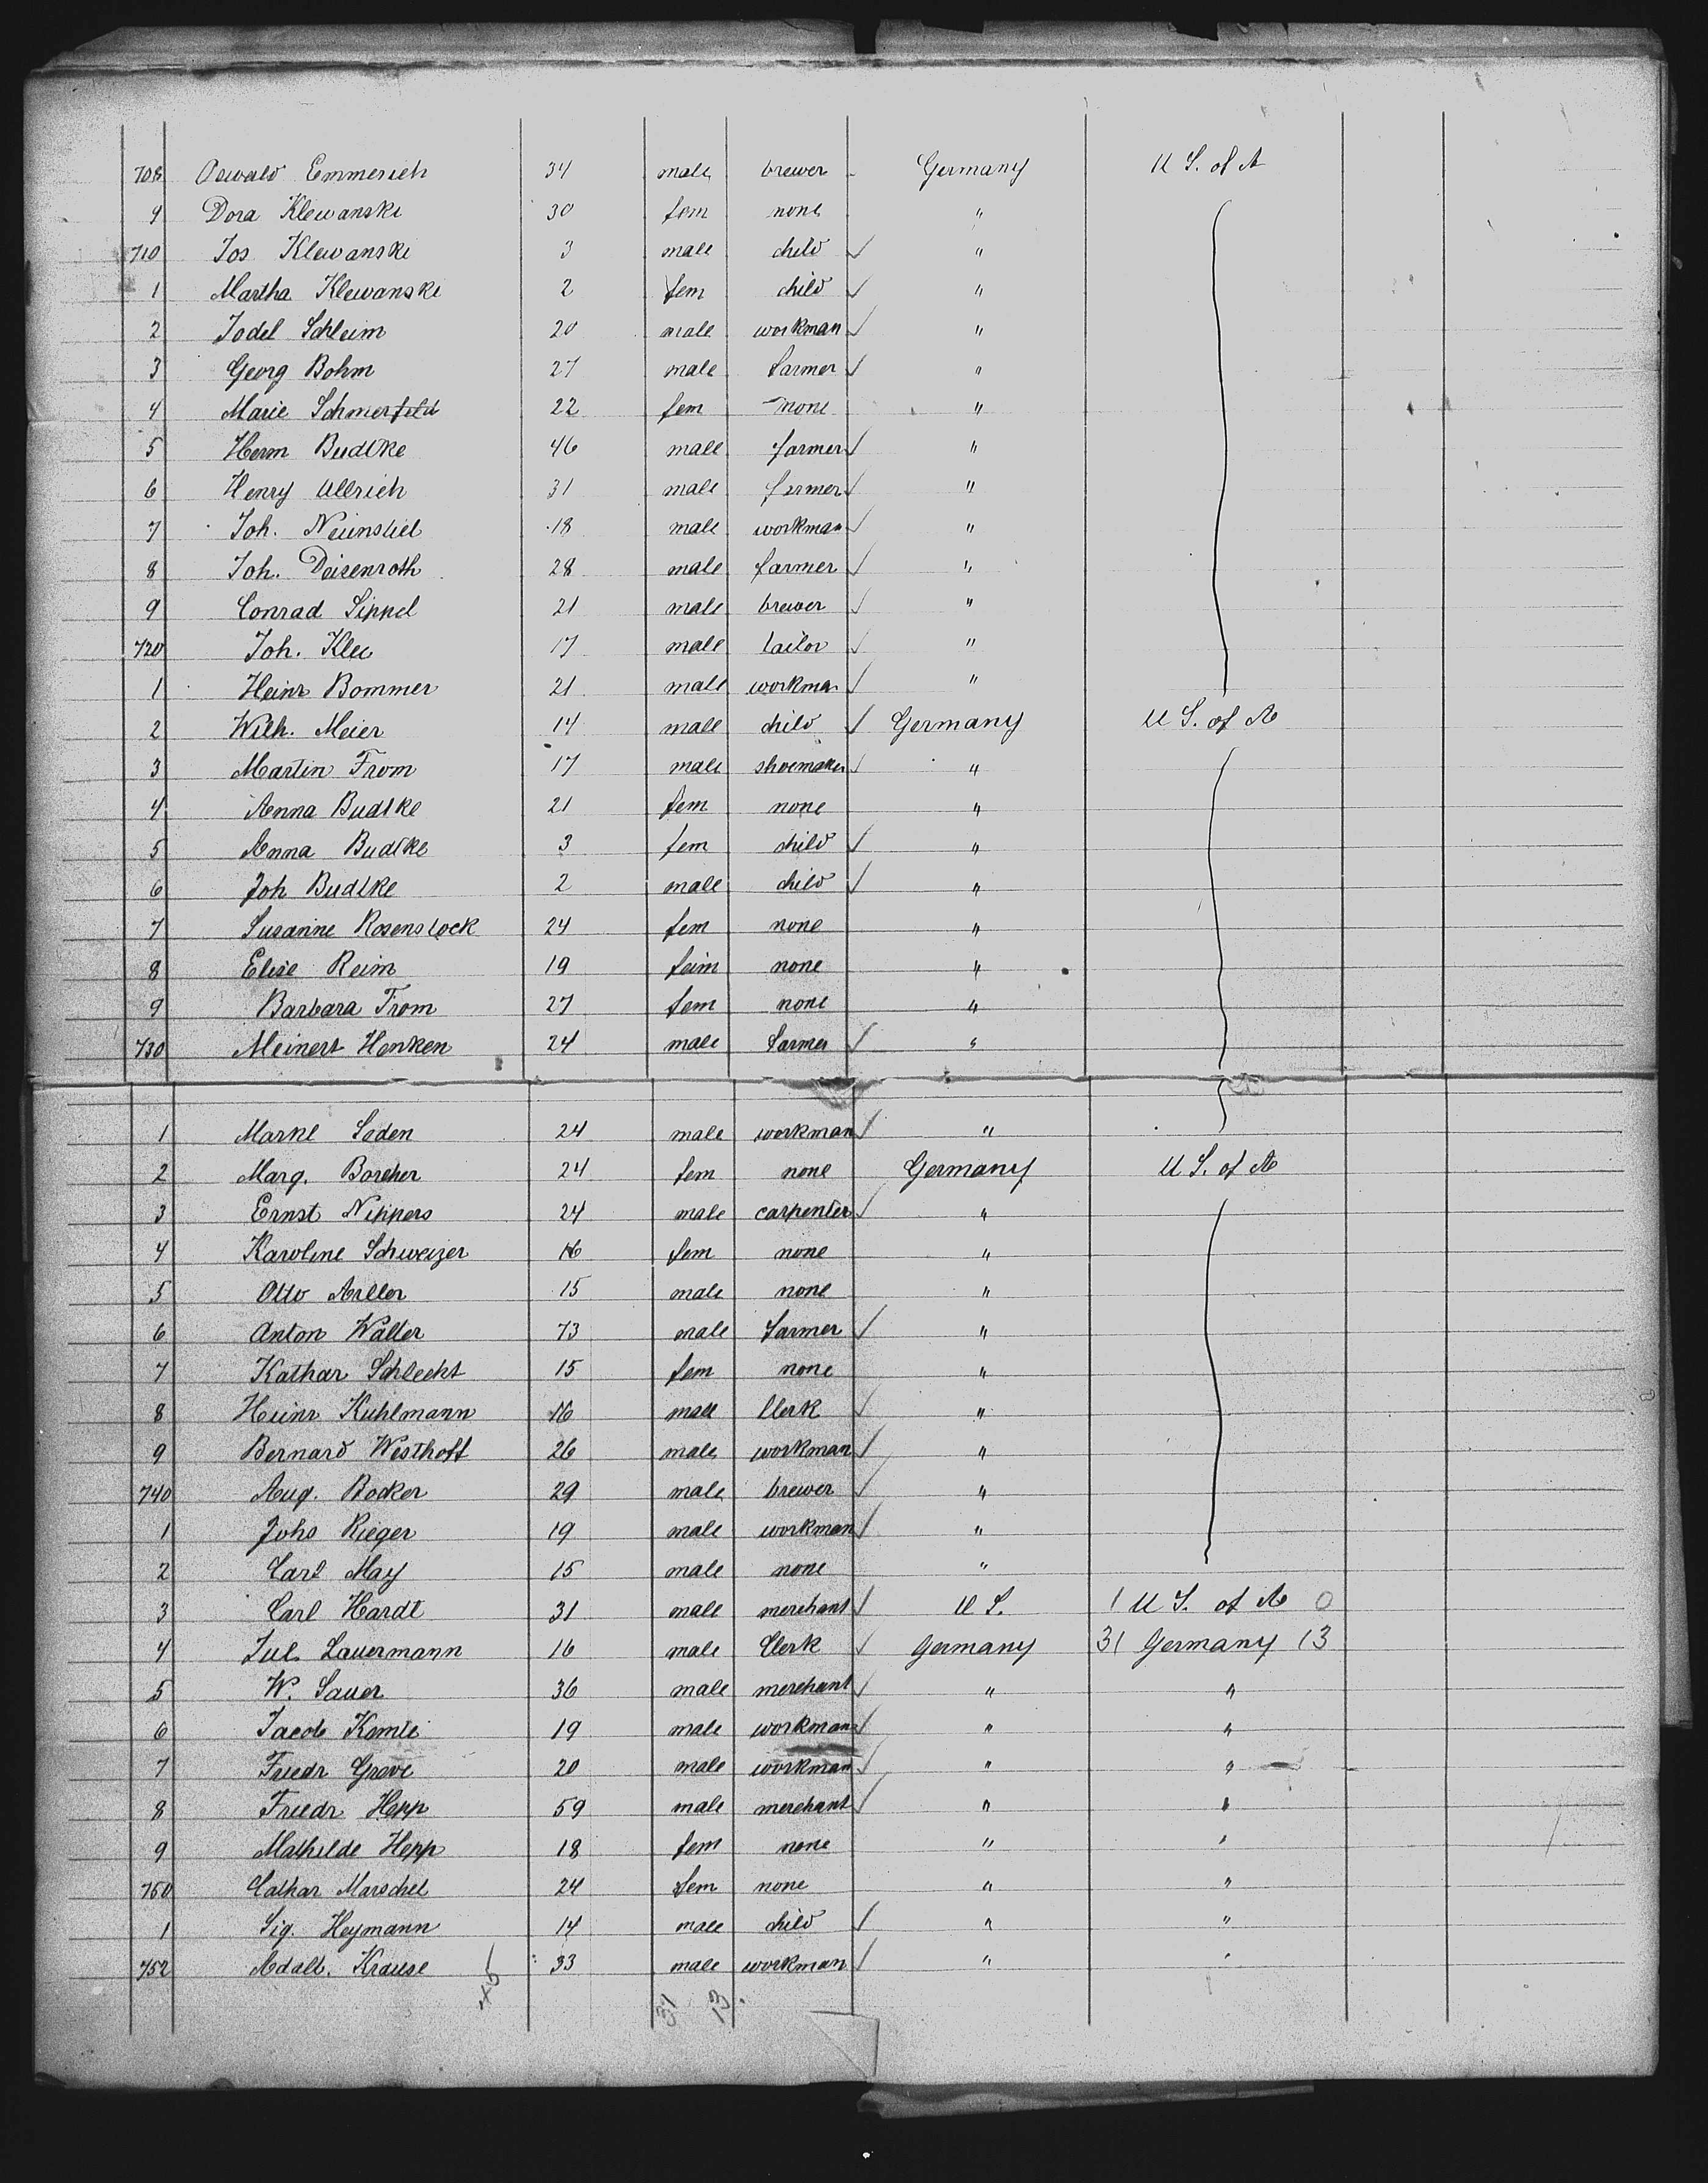 708 Oswald Emmerich 34 male brewer Germany U S. of A
9 Dora Klewanski 30 fem none "
710 Jos Klewanski 3 male child ✓ "
1 Martha Klewanski 2 fem child ✓ "
2 Jodel Schleim 20 male workman ✓ "
3 Georg Bohm 27 male farmer ✓ "
4 Marie Schmerfeld 22 fem none "
5 Herm Budtke 46 male farmer ✓ "
6 Henry Ullrich 31 male farmer ✓ "
7 Joh. Neunstiel 18 male workman ✓ "
8 Joh. Deisenroth 28 male farmer ✓ "
9 Conrad Sippel 21 male brewer ✓ "
720 Joh. Klee 17 male tailor ✓ "
1 Heinr Bommer 21 male workman ✓ "
2 Wilh. Meier 14 male child ✓ Germany U S. of A
3 Martin From 17 male shoemaker ✓ "
4 Anna Budtke 21 fem none "
5 Anna Budtke 3 fem child ✓ "
6 Joh Budtke 2 male child ✓ "
7 Susanne Rosenstock 24 fem none "
8 Elise Reim 19 feim none "
9 Barbara From 27 fem none "
730 Meinert Henken 24 male farmer ✓ "
1 Soden 24 male workman ✓ "
2 Marg. Borcher 24 fem none Germany U S. of A
3 Ernst Nippers 24 male carpenter ✓ "
4 Karoline Schweizer 16 fem none "
5 Otto 15 male none "
6 Anton Walter 73 male farmer ✓ "
7 Kathar Schlecht 15 fem none "
8 Heinr Kuhlmann 16 male Clerk ✓ "
9 Bernard Westhoff 26 male workman ✓ "
740 Aug. Bocker 29 male brewer ✓ "
1 Johs Rieger 19 male workman ✓ "
2 Carl May 15 male none "
3 Carl Hardt 31 male merchant ✓ U S. 1 U S. of A 0
4 Jul. Lauermann 16 male Clerk ✓ Germany 31 Germany 13
5 W. Sauer 36 male merchant ✓ " "
6 Jacob Kemle 19 male workman ✓ " "
7 Friedr Greve 20 male workman ✓ " "
8 Friedr Hepp 59 male merchant ✓ " "
9 Mathilde Hepp 18 fem none " "
750 Cathar Marschel 24 fem none " "
1 Sig. Heymann 14 male child ✓ " "
752 Adalb. Krause 33 male workman ✓ " "
45 31 13